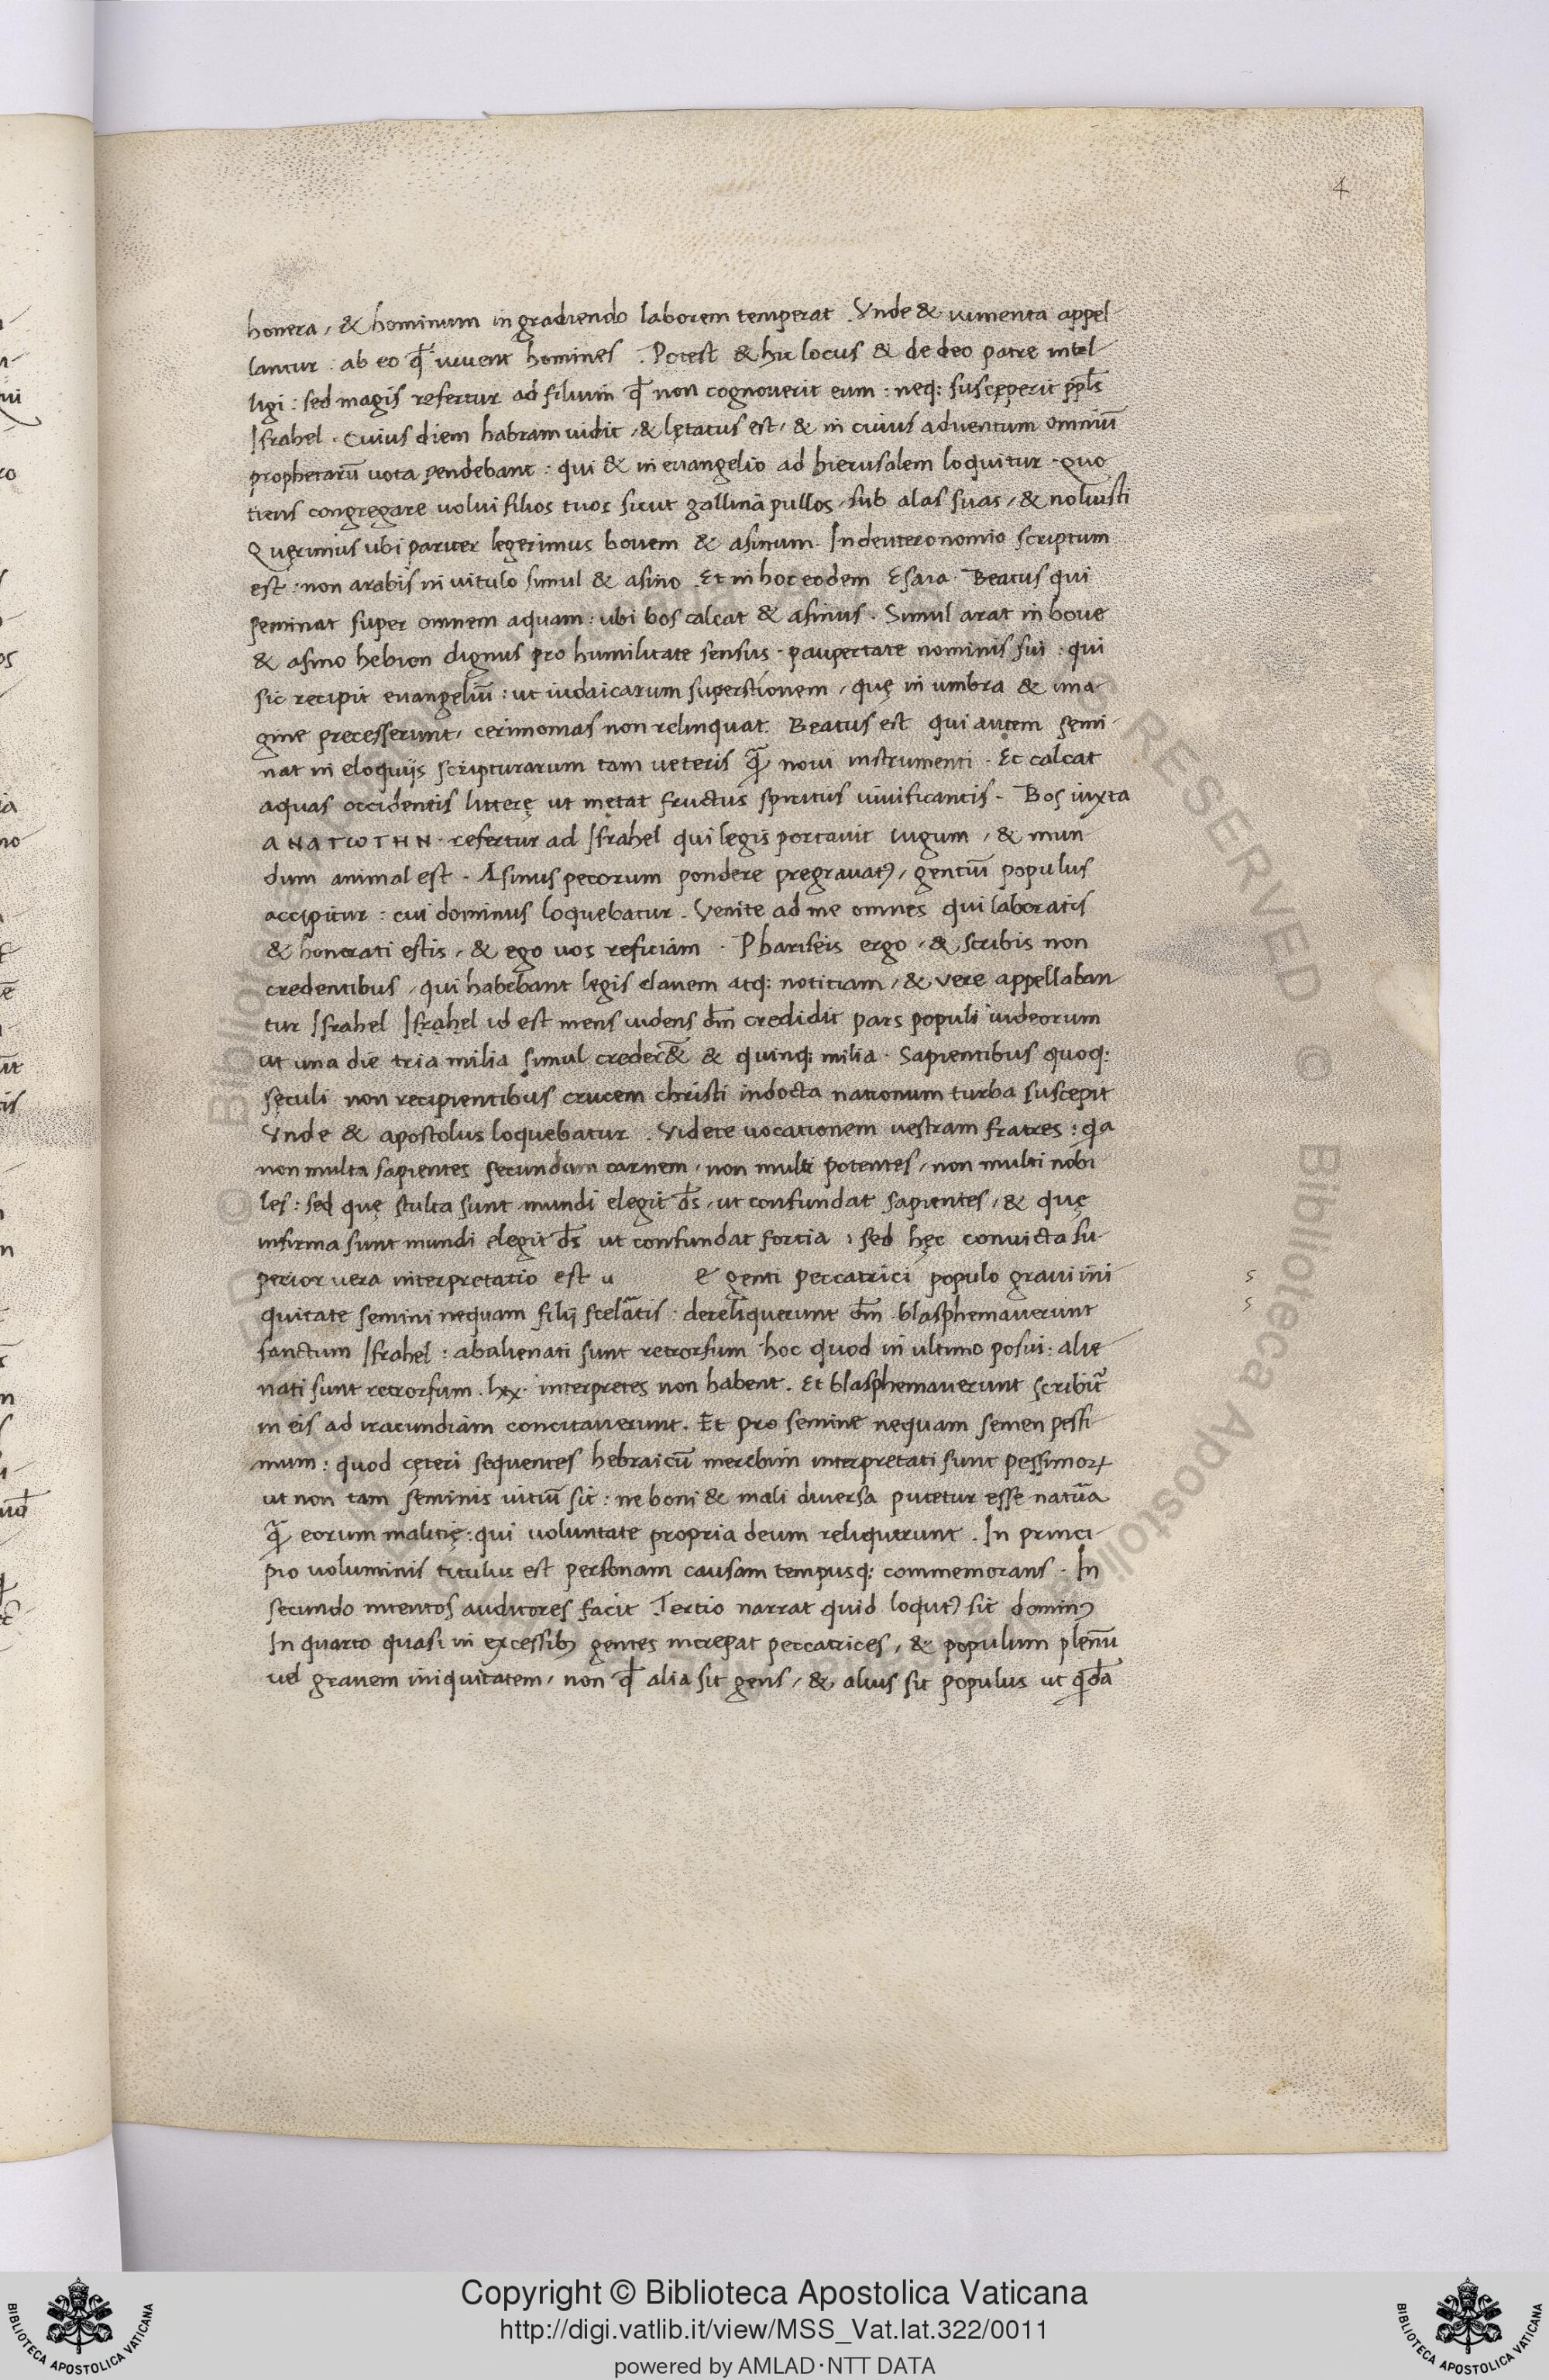 4
honera, & hominum in gradiendo laborem temperat. Vnde & iumenta appel-
lantur: ab eo qđ iuuent homines. Potest & hic locus & de deo patre intel-
ligi: sed magis refertur ad filium qđ non cognouerit eum: neq; suscęperit ppłs
Israhel. Cuius diem habram uidit, & lętatus est, & in cuius aduentum omniũ
prophetarũ uota pendebant: qui & in euangelio ad hierusalem loquitur. Quo
tiens congregare uolui filios tuos sicut gallinã pullos sub alas suas, & noluisti
Quęrimus ubi pariter legerimus bouem & asinum. In deuteronomio scriptum
est: non arabis in uitulo simul & asino. Et in hoc eodem Esaia. Beatus qui
seminat super omnem aquam: ubi bos calcat & asinus. Simul arat in boue
& asino hebion dignus pro humilitate sensus. paupertate nominis sui: qui
sic recipit euangeliũ: ut iudaicarum superstionem, quę in umbra & ima-
gine precesserunt, cerimonias non relinquat. Beatus est qui autem semi-
nat in eloquijs scripturarum tam ueteris quã noui instrumenti. Et calcat
aquas occidentis litterę ut mętat fructus spiritus uiuificantis. Bos iuxta
ΑΝΑΓωΓΗΝ. refertur ad Israhel qui legis portauit iugum, & mun
dum animal est. Asinus peccorum pondere pregrauatꝰ, gentiũ populus
accipitur: cui dominus loquebatur. Venite ad me omnes qui laboratis
& honerati estis, & ego uos reficiam. Phariseis ergo, & scribis non
credentibus, qui habebant legis clauem atq; notitiam, & vere appellaban-
tur Israhel Israhel id est mens uidens dm̃ credidit pars populi iudeorum
ut una die tria milia simul creder&̃ & quinq; milia. Sapientibus quoq;
sęculi non recipientibus crucem christi indocta nationum turba suscepit
Vnde & apostolus loquebatur. Videte uocationem uestram fratres: qa
non multa sapientes secundum carnem, non multi potentes, non multi nobi
les: sed quę stulta sunt mundi elegit ds̃, ut confundat sapientes, & quę
infirma sunt mundi elegit ds̃ ut confundat fortia: sed hęc convicta su-
perior uera interpretatio est u e genti peccatrici populo graui ini
s
quitate semini nequam filij scelãtis: dereliquerunt dm̃ blasphemauerunt
s
sanctum Israhel: abalienati sunt retrorsum hoc quod in ultimo posui: alie
nati sunt retrorsum. lxx. interpretes non habent. Et blasphemauerunt scribit᷑
in eis ad iracundiam concitauerunt. Et pro semine nequam semen pessi-
mum: quod cęteri sequentes hebraicũ merebim interpretati sunt pessimoꝝ
ut non tam seminis uitiũ sit: ne boni & mali diuersa putetur esse natũa
quã eorum malitię: qui uoluntate propria deum reliquerunt. In princi-
pio uoluminis titulus est personam causam tempusq; commemorans. In
secundo intentos auditores facit Tertio narrat quid loqutꝰ sit dominꝰ
In quarto quasi in excessibꝰ gentes increpat peccatrices, & populum plenũ
uel grauem iniquitatem, non qđ alia sit gens, & alius sit populus ut qdã
Copyright © Biblioteca Apostolica Vaticana
http://digi.vatlib.it/view/MSS_Vat.lat.322/0011
powered by AMLAD·NTT DATA